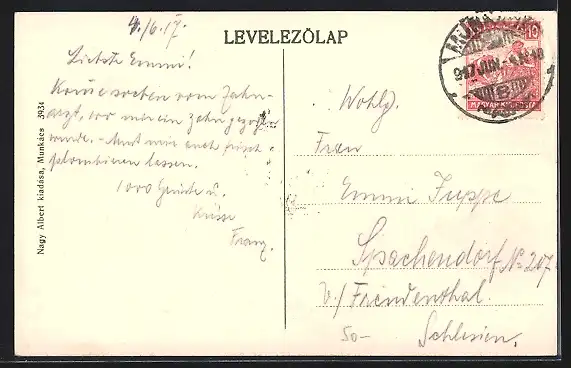 4./6.17.
LEVELEZŐLAP
Liebste Emmi!
Komme soeben vom Zahn-
arzt, wo mir ein Zahn gezogen
wurde. - Muß mir auch
plombieren lassen.
1000 Grüße u.
Küsse
Franz.
Nagy Albert kiadása, Munkács 3934
10
MAGYAR KIR. POSTA
917 JUN. -4
Wohlg.
Frau
Emmi Juppe
Spachendorf No 207
b./ Freudenthal.
Schlesien.
50-